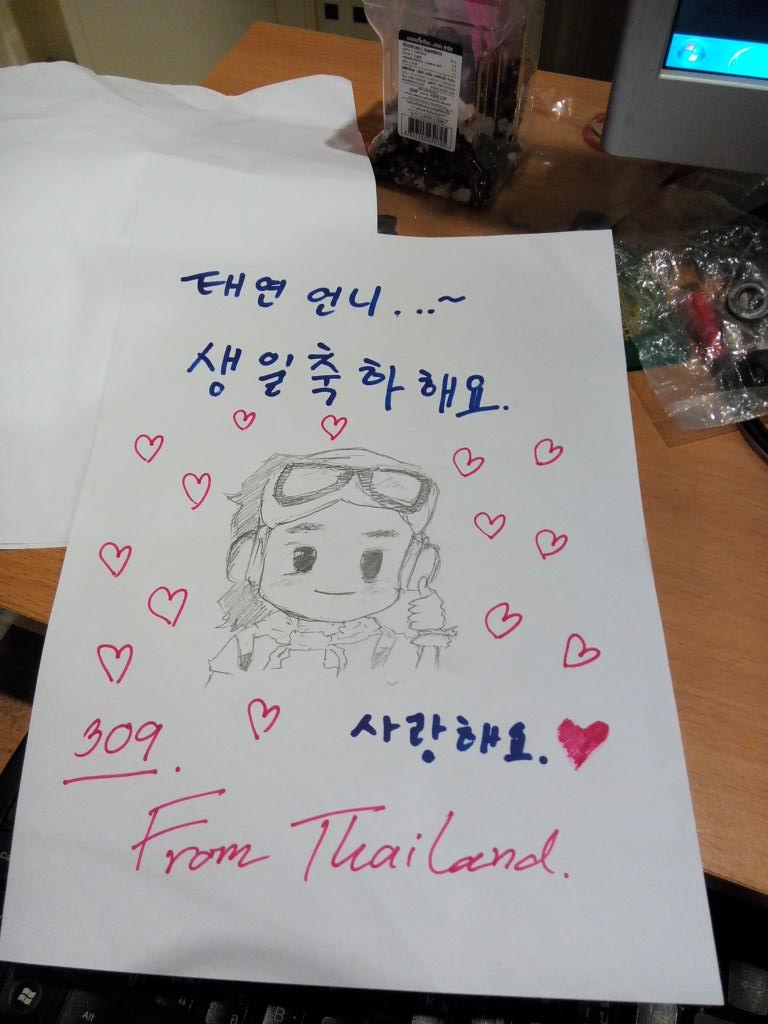 태연 언니....~
생일축하해요.
309.
사랑해요.
From Thailand.
Alt